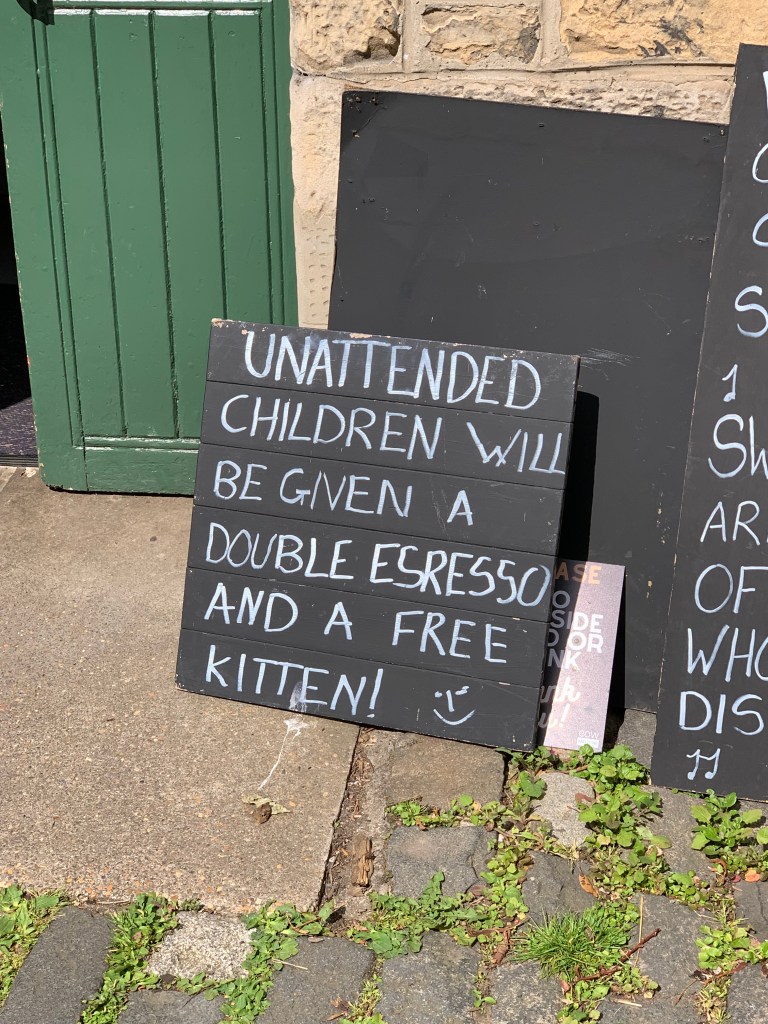 UNATTENDED
CHILDREN WILL
BE GIVEN A
DOUBLE ESRESSO
AND A FREE
KITTEN!
ASE
O
SIDE
D OR
NK
u!
C
C
S
SW
AR
OF
WHO
DIS